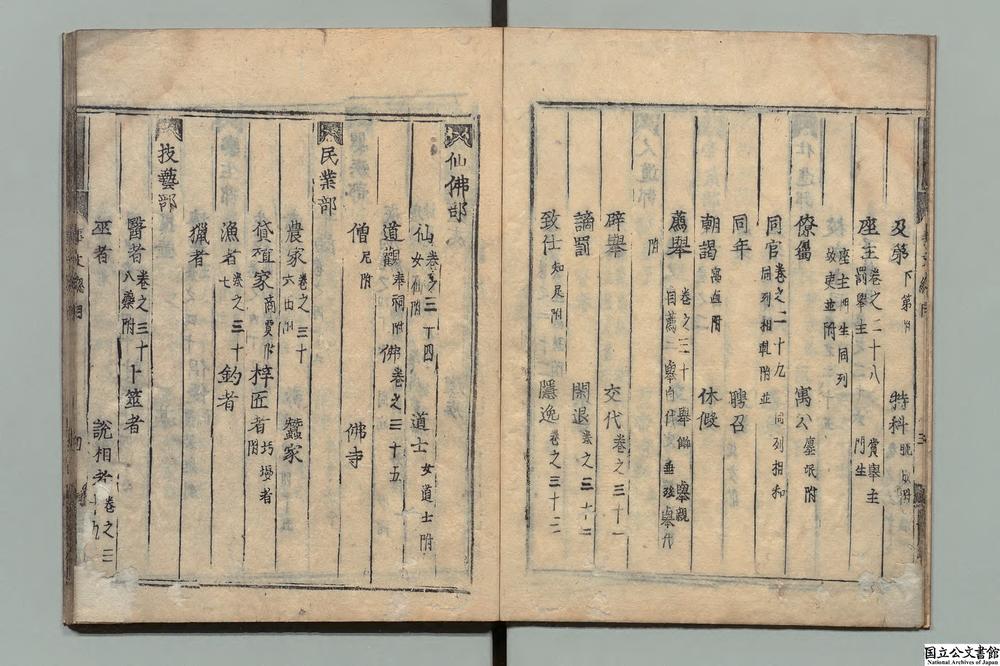 及第 下第附 特科
座主 卷之二十八 罰舉主 座主門生同列 故吏並附 賞舉主 門生
僚屬 寓公 塵氓附
同官 卷之二十九 同列相輕附並 同列相和
同年 聘召
朝謁 寓直附 休假
薦舉 卷之三十 自薦 舉自代 舉親 舉代 附
辟舉 交代 卷之三十一
謫罰 閑退 卷之三十二
致仕 知足附 隱逸 卷之三十三
仙佛部
仙 卷之三十四 女仙附 道士 女道士附
道觀 奉祠附 佛 卷之三十五
僧 尼附 佛寺
民業部
農家 卷之三十六 蠶家
貨殖家 商賈附 梓匠者 圬墁者附
漁者 卷之三十七 釣者
獵者
技藝部
醫者 卷之三十八 藥附 卜筮者
巫者 說相者 卷之三十九
国立公文書館
National Archives of Japan